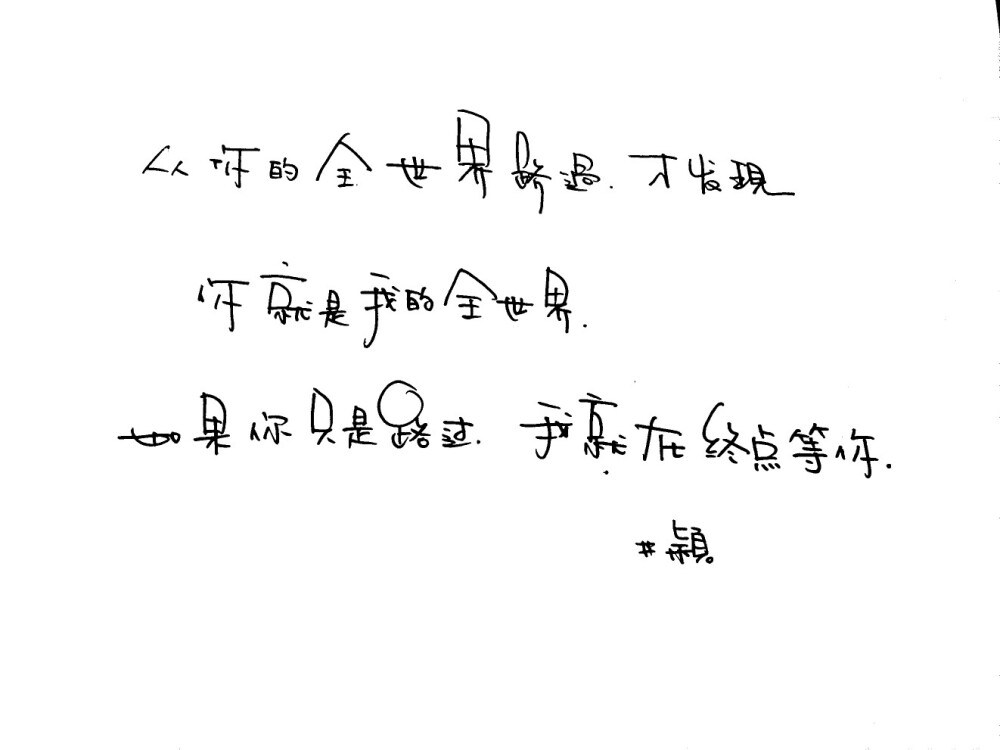 从你的全世界路過.才发現
你就是我的全世界.
如果你只是路过.我就在终点等你.
#穎。